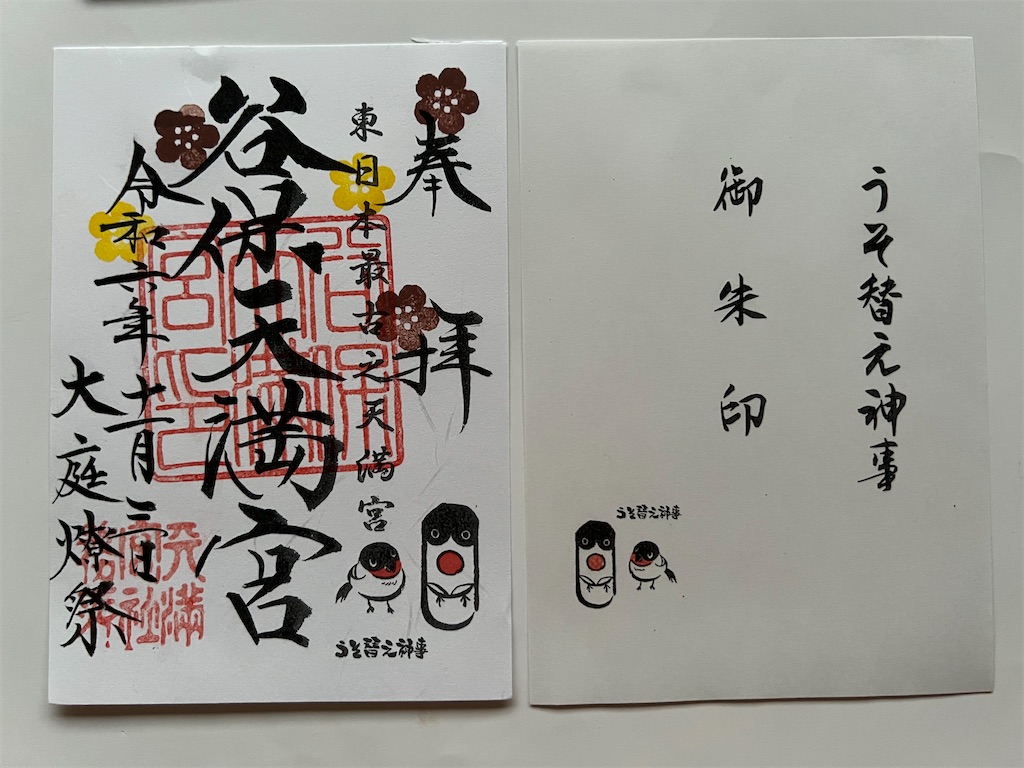 奉拝
東日本最古之天満宮
谷保天満宮
令和六年十一月三日
大庭燎祭
うそ替え神事
うそ替え神事
御朱印
うそ替え神事